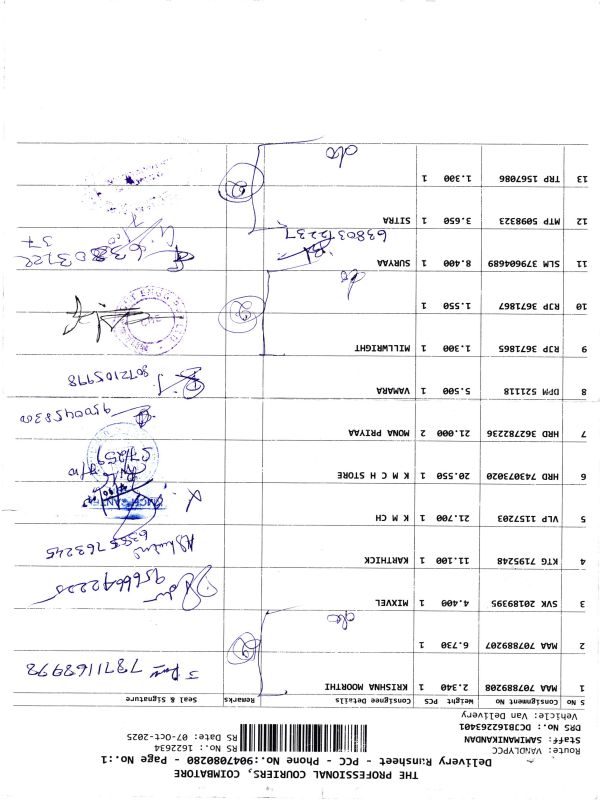 THE PROFESSIONAL COURIERS, COIMBATORE
Delivery Runsheet - PCC - Phone No.:9047080280 - Page No.:1
Route: VANDLYPCC
Staff: SAMIMANIKANDAN
DRS No.: DC3B1622263401
Vehicle: Van Delivery
RS No.: 1622634
RS Date: 07-Oct-2025
S No Consignment No Weight PCS Consignee Details Remarks Seal & Signature
1 MAA 707889208 2.340 1 KRISHNA MOORTHI 7371168978
2 MAA 707889207 6.730 1 do
3 SVK 20189395 4.400 1 MIXVEL 9566642225
4 KTG 7195248 11.100 1 KARTHICK 6385763245
5 VLP 1157203 21.700 1 K M CH
6 HRD 743073020 20.550 1 K M C H STORE 57259
7 HRD 362782236 21.000 2 MONA PRIYAA 9500458300
8 DPM 521118 5.500 1 VAMARA 8072105978
9 RJP 3671865 1.300 1 MILLWRIGHT
10 RJP 3671867 1.550 1 do 2
11 SLM 379604689 8.400 1 SURYAA 6380372237
12 MTP 5098323 3.650 1 SITRA
13 TRP 1567086 1.300 1 do 2